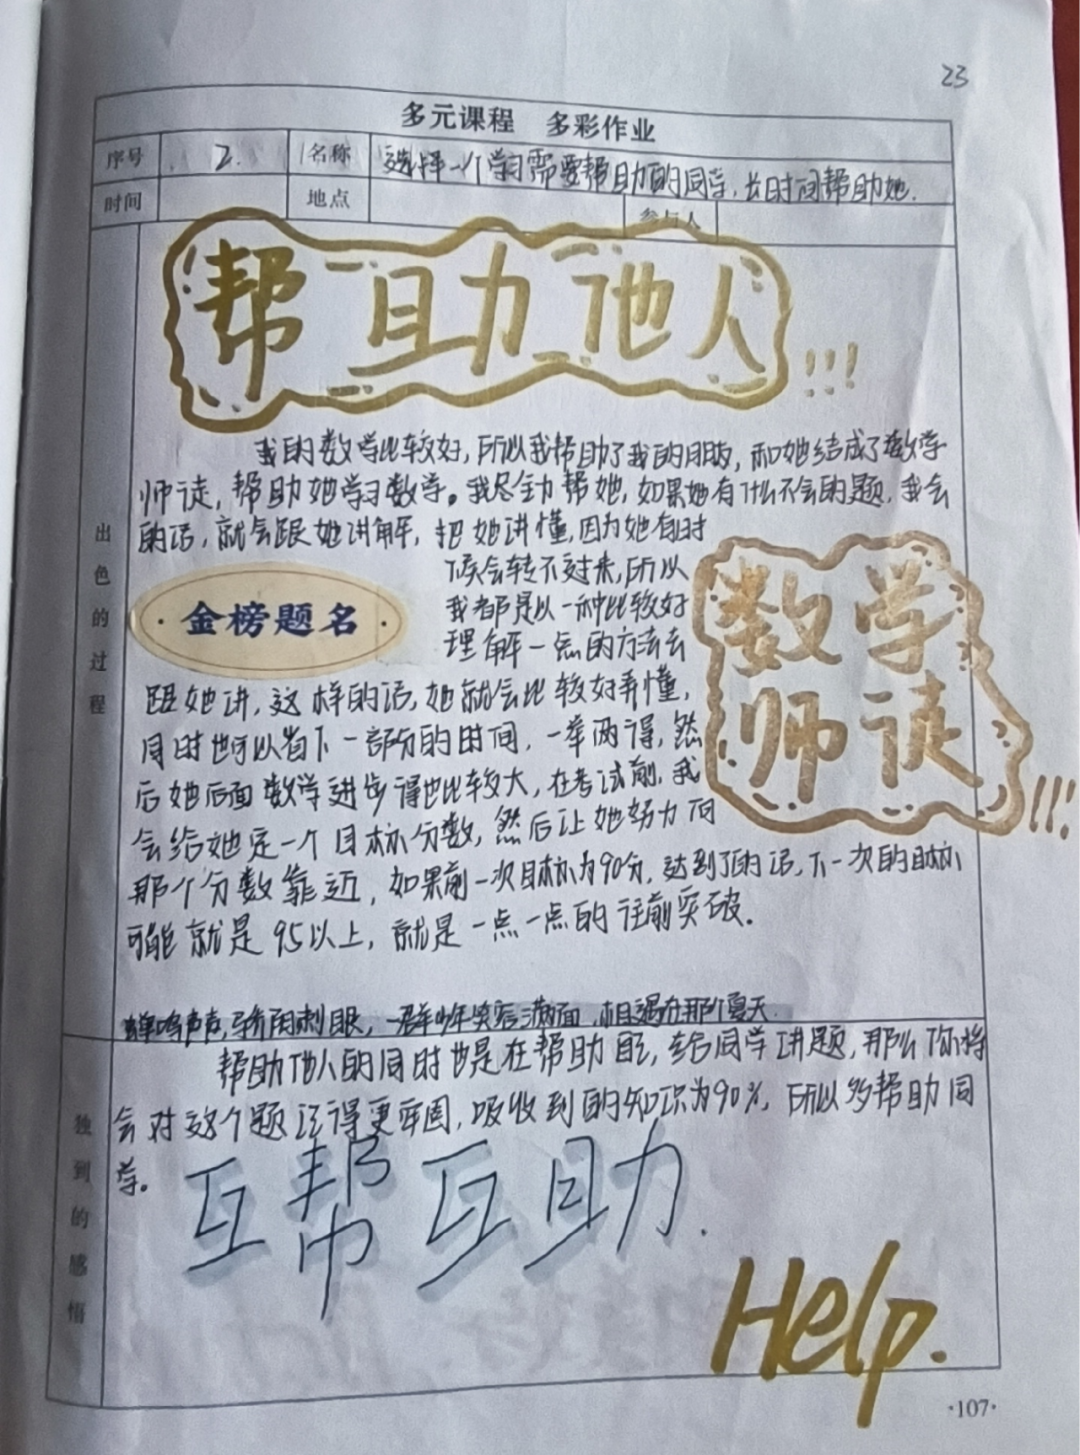 23
多元课程 多彩作业
序号 2. 名称 选择一个学习需要帮助的同学,长时间帮助她.
时间 地点 参与人
帮助他人!!!
我的数学比较好,所以我帮助了我的朋友,和她结成了数学
师徒,帮助她学习数学。我尽全力帮她,如果她有什么不会的题,我会
的话,就会跟她讲解,把她讲懂,因为她有时
候会转不过来,所以
我都是以一种比较好
理解一点的方法去
金榜题名
数学
师徒!!!
跟她讲,这样的话,她就会比较好弄懂,
同时也可以省下一部分的时间,一举两得,然
后她后面数学进步得也比较大,在考试前,我
会给她定一个目标分数,然后让她努力向
那个分数靠近,如果前一次目标为90分,达到了的话,下一次的目标
可能就是95以上,就是一点一点的往前突破.
出色的过程
蝉鸣声声,骄阳刺眼,一群少年笑容满面,相遇在那个夏天.
帮助他人的同时也是在帮助自己,给同学讲题,那么你将
会对这个题记得更牢固,吸收到的知识为90%,所以多帮助同
学。
互帮互助.
独到的感悟
Help.
·107·